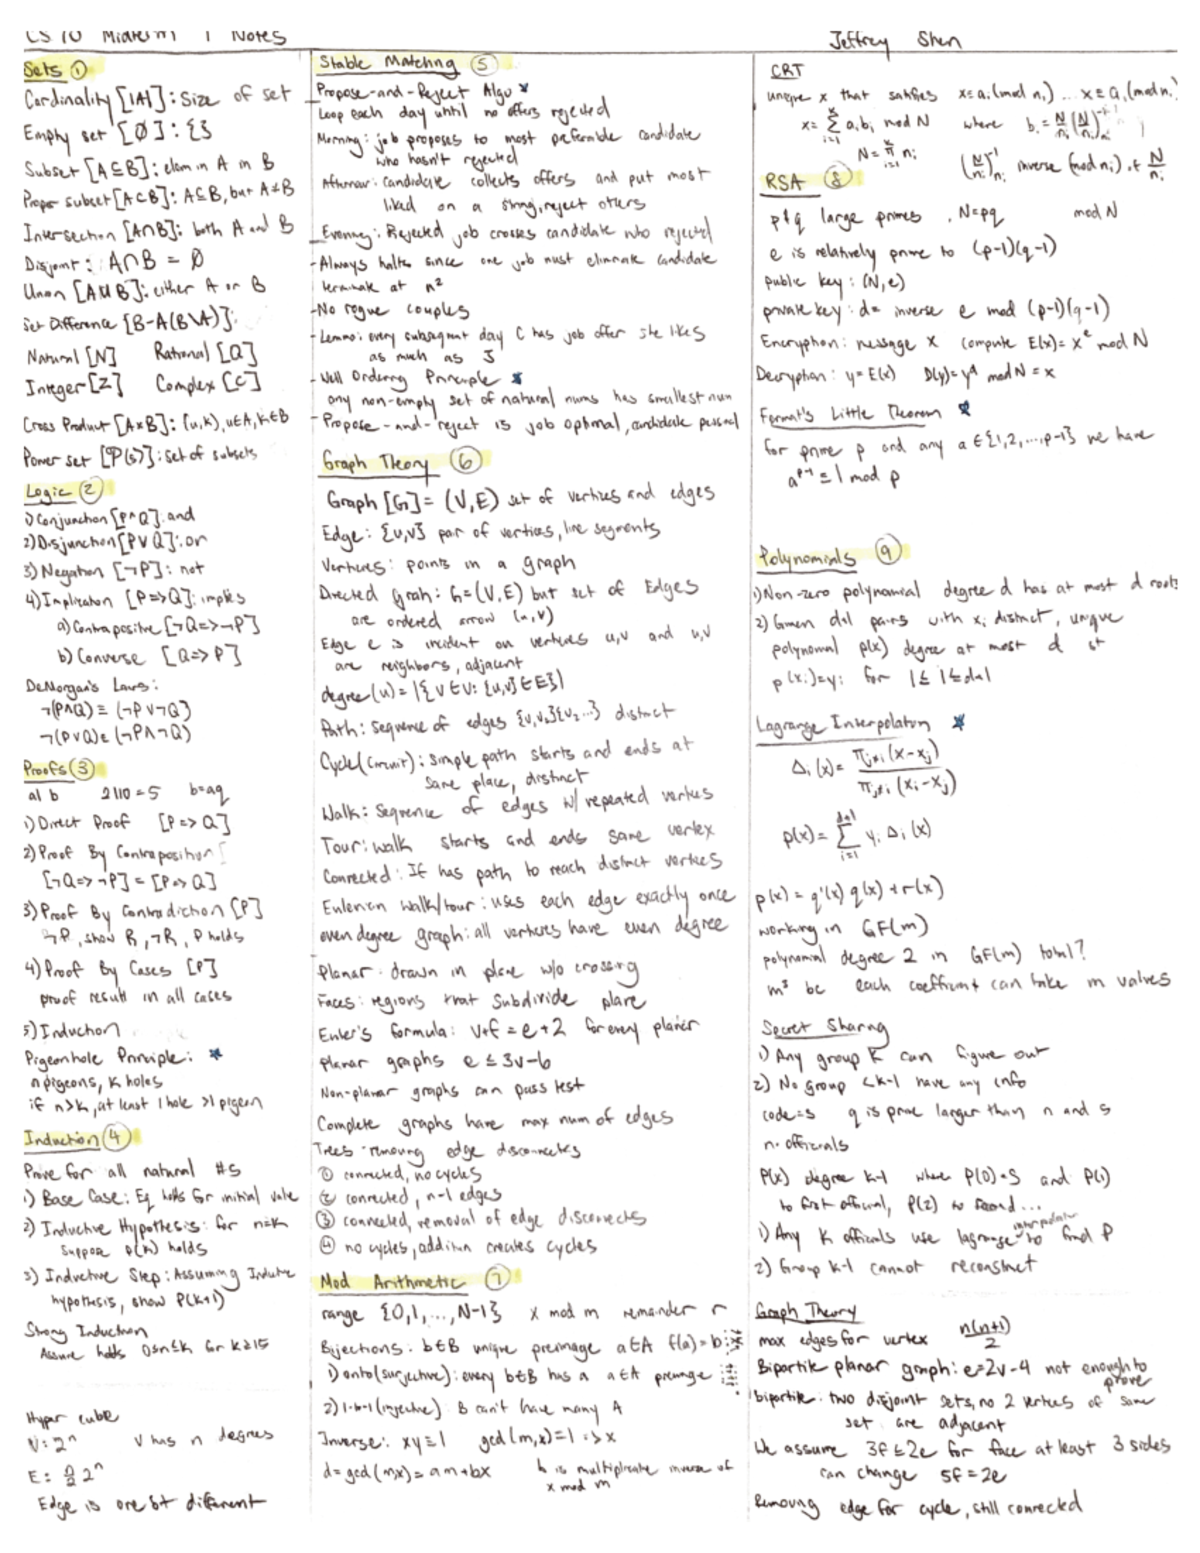 CS 70 Midterm 1 Notes
Jeffrey Shen
Sets ①
Cardinality [|A|]: Size of set
Empty set [∅]: {}
Subset [A⊆B]: elem in A in B
Proper subset [A⊂B]: A⊆B, but A≠B
Intersection [A∩B]: both A and B
Disjoint: A∩B = ∅
Union [A∪B]: either A or B
Set Difference [B-A(B\A)]:
Natural [N] Rational [Q]
Integer [Z] Complex [C]
Cross Product [A×B]: (u,k), u∈A, k∈B
Power set [P(s)]: set of subsets
Logic ②
1) Conjunction [P∧Q]: and
2) Disjunction [P∨Q]: or
3) Negation [¬P]: not
4) Implication [P=>Q]: implies
a) Contrapositive [¬Q=>¬P]
b) Converse [Q=>P]
DeMorgan's Laws:
¬(P∧Q) ≡ (¬P∨¬Q)
¬(P∨Q) ≡ (¬P∧¬Q)
Proofs ③
a|b 2|10=5 b=aq
1) Direct Proof [P=>Q]
2) Proof By Contraposition [
[¬Q=>¬P] = [P=>Q]
3) Proof By Contradiction [P]
¬P, show R, ¬R, P holds
4) Proof By Cases [P]
proof result in all cases
5) Induction
Pigeonhole Principle: ★
n pigeons, k holes
if n>k, at least 1 hole >1 pigeon
Induction ④
Prove for all natural #s
1) Base Case: Eq holds for initial value
2) Inductive Hypothesis: for n=k
suppose p(k) holds
3) Inductive Step: Assuming Inductive
hypothesis, show P(k+1)
Strong Induction
Assume holds 0≤n≤k for k≥15
Hyper cube
V: 2ⁿ V has n degrees
E: n/2 2ⁿ
Edge is one bit different
Stable Matching ⑤
Propose-and-Reject Algo ★
Loop each day until no offers rejected
Morning: job proposes to most preferable candidate
who hasn't rejected
Afternoon: candidate collects offers and put most
liked on a string, reject others
Evening: Rejected job crosses candidate who rejected
-Always halts since one job must eliminate candidate
terminate at n²
-No rogue couples
-Lemma: every subsequent day C has job offer she likes
as much as J
-Well Ordering Principle ★
any non-empty set of natural nums has smallest num
-Propose-and-reject is job optimal, candidate pessimal
Graph Theory ⑥
Graph [G] = (V,E) set of vertices and edges
Edge: {u,v} pair of vertices, line segments
Vertices: points in a graph
Directed Grah: G=(V,E) but set of Edges
are ordered arrow (u,v)
Edge e is incident on vertices u,v and u,v
are neighbors, adjacent
degree(u) = |{v∈V: {u,v}∈E}|
Path: sequence of edges {v,v₂}{v₂...} distinct
Cycle(circuit): simple path starts and ends at
same place, distinct
Walk: Sequence of edges w/ repeated vertices
Tour: walk starts and ends same vertex
Connected: If has path to reach distinct vertices
Eulerian walk/tour: uses each edge exactly once
even degree graph: all vertices have even degree
Planar: drawn in plane w/o crossing
Faces: regions that subdivide plane
Euler's formula: v+f = e+2 for every planar
planar graphs e ≤ 3v-6
Non-planar graphs can pass test
Complete graphs have max num of edges
Trees - removing edge disconnects
① connected, no cycles
② connected, n-1 edges
③ connected, removal of edge disconnects
④ no cycles, addition creates cycles
Mod Arithmetic ⑦
range {0,1,...,N-1} x mod m remainder r
Bijections: b∈B unique preimage a∈A f(a)=b
1) onto(surjective): every b∈B has a a∈A preimage
2) 1-to-1 (injective): B can't have many A
Inverse: xy≡1 gcd(m,x)=1 => x
d=gcd(m,x) = am+bx b is multiplicative inverse of
x mod m
CRT
unique x that satisfies x≡a₁(mod n₁) ... x≡aᵢ(mod nᵢ)
x= Σ aᵢbᵢ mod N where bᵢ = N/nᵢ (N/nᵢ)⁻¹nᵢ
N = π nᵢ (N/nᵢ)⁻¹nᵢ inverse (mod nᵢ) of N/nᵢ
RSA ⑧
p&q large primes, N=pq mod N
e is relatively prime to (p-1)(q-1)
public key: (N,e)
private key: d= inverse e mod (p-1)(q-1)
Encryption: message x compute E(x)=xᵉ mod N
Decryption: y=E(x) D(y)=yᵈ mod N = x
Fermat's Little Theorem ★
for prime p and any a∈{1,2,...,p-1} we have
aᵖ⁻¹ ≡ 1 mod p
Polynomials ⑨
1) Non-zero polynomial degree d has at most d roots
2) Given d+1 pairs with xᵢ distinct, unique
polynomial p(x) degree at most d st
p(xᵢ)=yᵢ for 1≤i≤d+1
Lagrange Interpolation ★
Δᵢ(x) = πj≠i (x-xj) / πj≠i (xᵢ-xj)
p(x) = Σ yᵢ Δᵢ(x) (i=1 to d+1)
p(x) = q'(x) q(x) + r(x)
working in GF(m)
polynomial degree 2 in GF(m) total?
m³ bc each coefficient can take m values
Secret Sharing
1) Any group K can figure out
2) No group <k-1 have any info
code=s q is prime larger than n and s
n: officials
P(x) degree k-1 where P(0)=S and P(1)
to first official, P(2) to second...
1) Any K officials use lagrange interpolation to find P
2) Group k-1 cannot reconstruct
Graph Theory
max edges for vertex n(n+1)/2
Bipartite planar graph: e=2v-4 not enough to
prove
bipartite: two disjoint sets, no 2 vertices of same
set are adjacent
We assume 3f≤2e for face at least 3 sides
can change 5f=2e
Removing edge for cycle, still connected